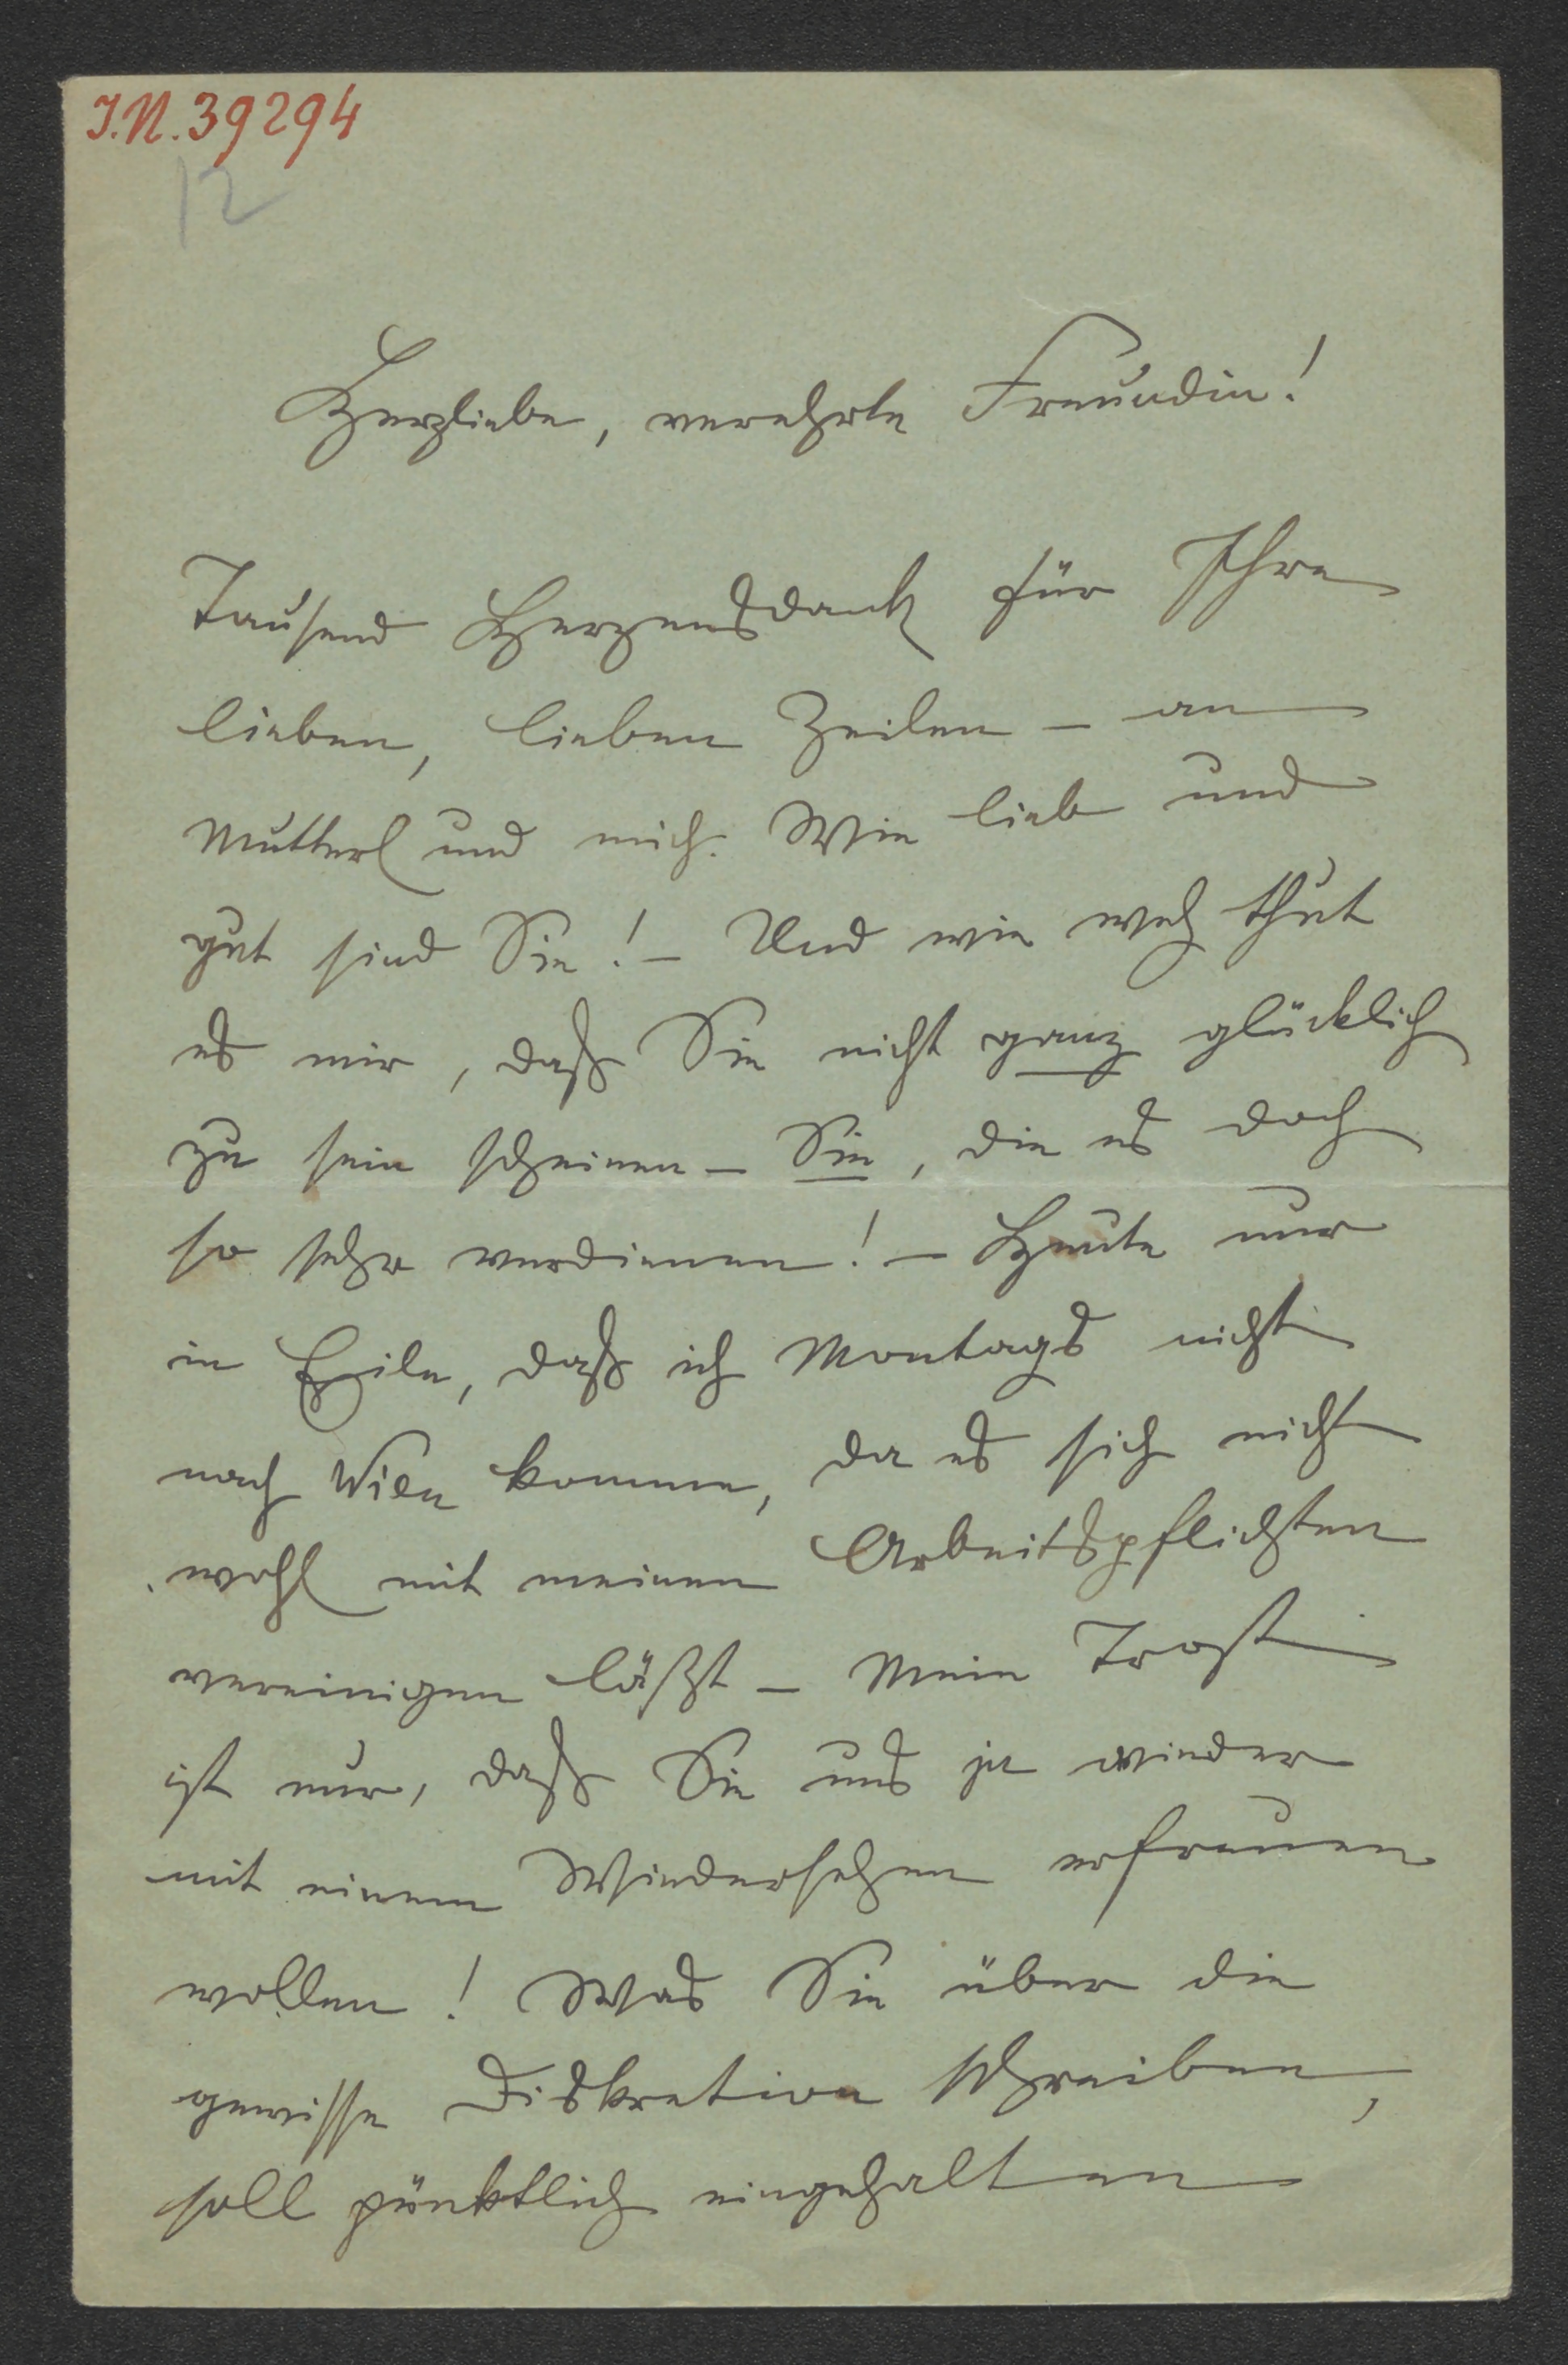 I.N. 39294
12
Herzliebe, verehrte Freundin!
Tausend Herzensdank für Ihre
lieben, lieben Zeilen – an
Mutterl und mich. Wie lieb und
gut sind Sie! – Und wie weh thut
es mir, daß Sie nicht ganz glücklich
zu sein scheinen – Sie, die es doch
so sehr verdienen! – Heute nur
in Eile, daß ich Montags nicht
nach Wien komme, da es sich nicht
wohl mit meinen Arbeitspflichten
vereinigen läßt – Mein Trost
ist nur, daß Sie uns ja wieder
mit einem Wiedersehen erfreuen
wollen! Was Sie über die
gewisse Diskretion schreiben,
soll pünktlich eingehalten